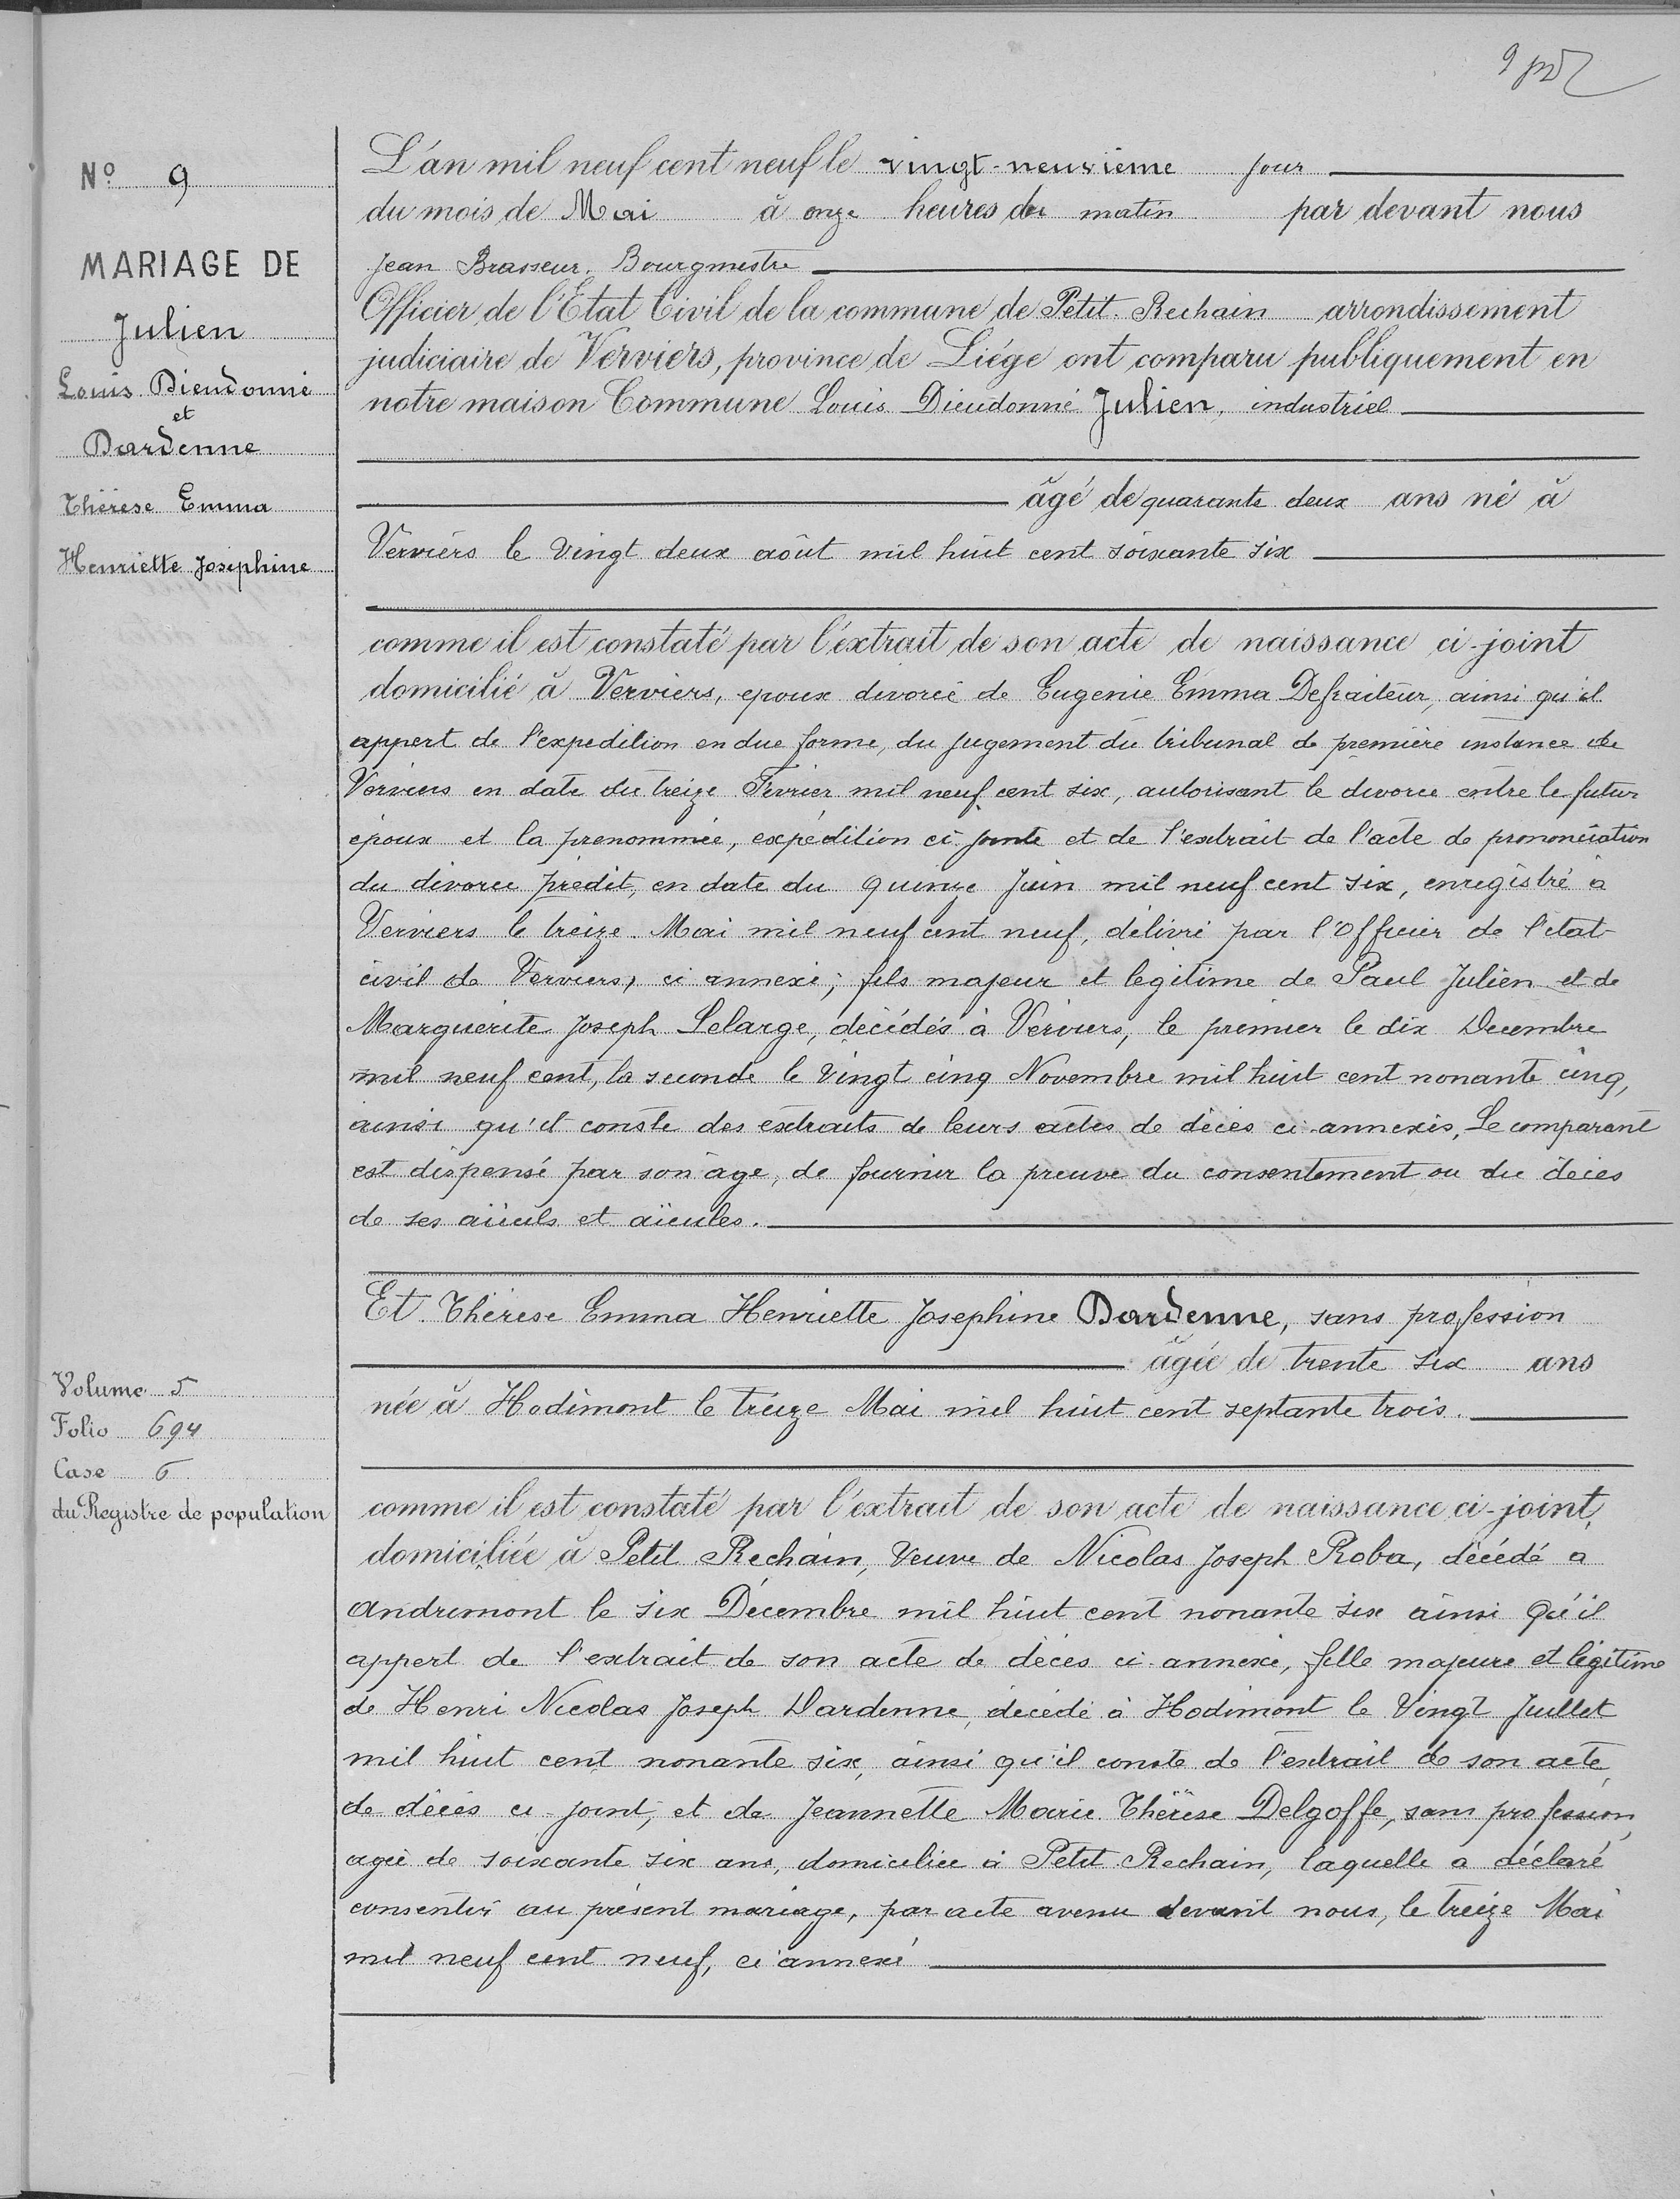 9
Nº 9
MARIAGE DE
Julien
Louis Dieudonné
et
Dardenne
Thérèse Emma
Henriette Joséphine
Volume 5
Folio 694
Case 6
du Registre de population
L'an mil neuf cent neuf le vingt-neuvième jour
du mois de Mai à onze heures du matin par devant nous
Jean Brasseur, Bourgmestre
Officier de l'Etat Civil de la commune de Petit-Rechain arrondissement
judiciaire de Verviers, province de Liége ont comparu publiquement en
notre maison Commune Louis Dieudonné Julien, industriel
âgé de quarante deux ans né à
Verviers le vingt deux août mil huit cent soixante six
comme il est constaté par l'extrait de son acte de naissance ci-joint
domicilié à Verviers, epoux divorcé de Eugenie Emma Defraiteur, ainsi qu'il
appert de l'expedition en due forme, du jugement du tribunal de première instance de
Verviers en date du treize Fevrier mil neuf cent six, autorisant le divorce entre le futur
époux et la prenommée, expédition ci jointe et de l'extrait de l'acte de prononciation
du divorce prédit, en date du quinze Juin mil neuf cent six, enregistré à
Verviers le treize Mai mil neuf cent neuf, délivré par l'Officier de l'état
civil de Verviers, ci annexé; fils majeur et legitime de Paul Julien et de
Marguerite Joseph Lelarge, décédés à Verviers, le premier le dix Decembre
mil neuf cent, la seconde le vingt cinq Novembre mil huit cent nonante cinq,
ainsi qu'il conste des extraits de leurs actes de décès ci-annexés. Le comparant
est dispensé par son âge, de fournir la preuve du consentement ou du décès
de ses aïeuls et aïeules.
Et Thérèse Emma Henriette Josephine Dardenne, sans profession
âgée de trente six ans
née à Hodimont le treize Mai mil huit cent septante trois.
comme il est constaté par l'extrait de son acte de naissance ci-joint,
domiciliée à Petit Rechain, Veuve de Nicolas Joseph Roba, décédé à
Andrimont le six Décembre mil huit cent nonante six ainsi qu'il
appert de l'extrait de son acte de décès ci-annexé, fille majeure et légitime
de Henri Nicolas Joseph Dardenne, décédé à Hodimont le Vingt Juillet
mil huit cent nonante six, ainsi qu'il conste de l'extrait de son acte
de décès ci-joint, et de Jeannette Marie Thérèse Delgoffe, sans profession,
agée de soixante six ans, domiciliée à Petit-Rechain, laquelle a déclaré
consentir au présent mariage, par acte avenu devant nous, le treize Mai
mil neuf cent neuf, ci annexé